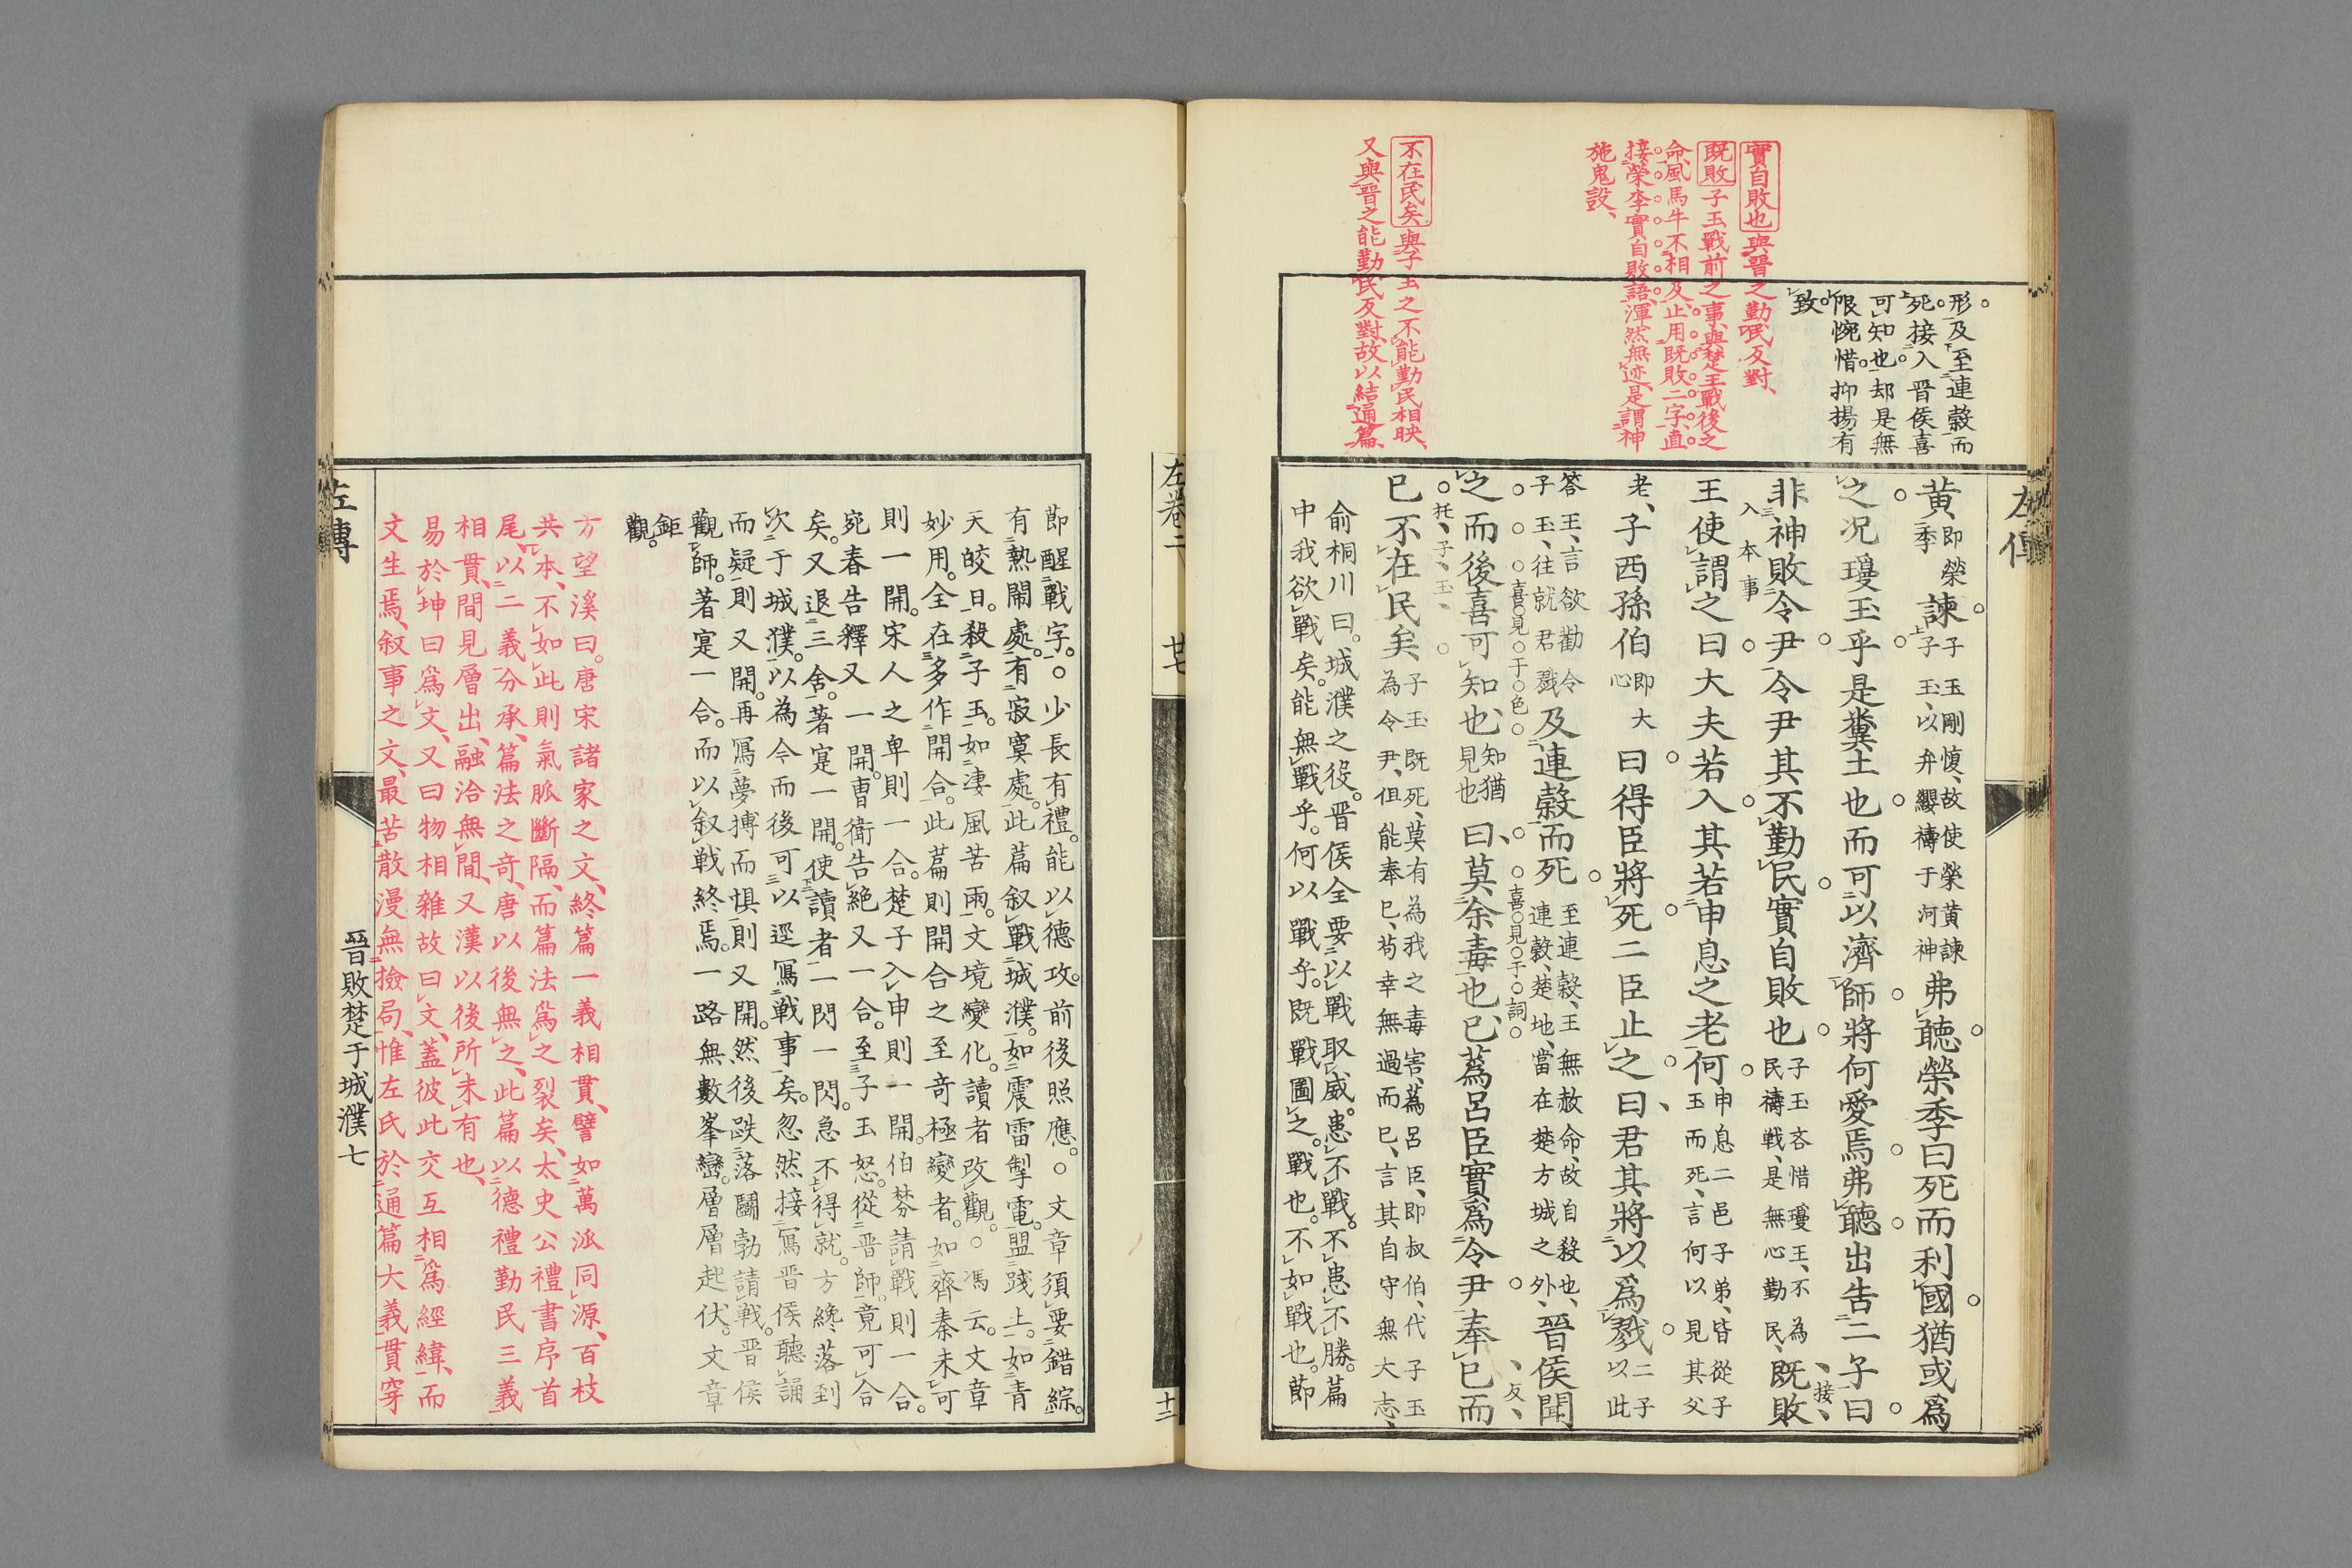 左傳
形及至連穀而
死接入晉侯喜
可知也却是無
限惋惜抑揚有
致
實自敗也與晉之勤民反對、
既敗子玉戰前之事與楚王戰後之
命風馬牛不相及、止用既敗二字、直
接榮李實自敗語、渾然無迹是謂神
施鬼設、
不在民矣與子玉之不能勤民相映、
又與晉之能勤民反對、故以結通篇、
黄、即榮季諫子玉剛愎、故使榮黄諫子玉、以弁纓禱于河神弗聽榮季曰死而利國猶或爲
之况瓊玉乎是糞土也而可以濟師將何愛焉弗聽出告二子曰
非神敗令尹令尹其不勤民實自敗也子玉吝惜瓊玉、不為民禱戦、是無心勤民、既敗
入本事
接
王使謂之曰大夫若入其若申息之老何申息二邑子弟、皆從子玉而死、言何以見其父
老、子西孫伯即大心曰得臣將死二臣止之曰君其將以爲戮二子以此
答王、言欲勸令子玉、往就君戮及連穀而死至連穀、王無赦命、故自殺也、連穀、楚地、當在楚方城之外、晉侯聞
喜見于色
喜見于詞
反
之而後喜可知也知猶見也曰莫余毒也已蔿呂臣實爲令尹奉已而
托子玉
已不在民矣子玉既死、莫有為我之毒害、蔿呂臣、即叔伯、代子玉為令尹、但能奉已、苟幸無過而已、言其自守無大志、
俞桐川曰。城濮之役。晋侯全要以戰取威。患不戰。不患不勝。篇
中我欲戰矣。能無戰乎。何以戰乎。既戰圖之。戰也。不如戰也。節
左卷二
廿七
十二
節醒戰字。○少長有禮。能以德攻。前後照應。○文章須要錯綜。
有熱鬧處。有寂寞處。此篇叙戰城濮。如震雷掣電。盟踐土。如青
天皎日。殺子玉。如凄風苦雨。文境變化。讀者改觀。○馮云。文章
妙用。全在多作開合。此篇則開合之至奇極變者。如齊秦未可
則一開。宋人之卑則一合。楚子入申則一開。伯棼請戰則一合。
宛春告釋又一開。曹衛告絕又一合。至子玉怒。從晉師。竟可合
矣。又退三舍。著寔一開。使讀者一閃一閃。急不得就。方纔落到
次于城濮。以為今而後可以逕寫戰事矣。忽然接寫晋侯聽誦
而疑則又開。再寫夢搏而惧則又開。然後跌落鬬勃請戰。晋侯
觀師。著寔一合。而以叙戦終焉。一路無數峯巒。層層起伏。文章
鉅
觀。
方望溪曰。唐宋諸家之文、終篇一義相貫、譬如萬派同源、百枝
共本、不如此則氣脈斷隔、而篇法爲之裂矣、太史公禮書序首
尾、以二義分承、篇法之奇、唐以後無之、此篇以德禮勤民三義
相貫、間見層出、融洽無間、又漢以後所未有也、
易於坤曰爲文、又曰物相雜故曰文、蓋彼此交互相爲經緯、而
文生焉、叙事之文、最苦散漫無撿局、惟左氏於通篇大義貫穿
左傳
晉敗楚于城濮七